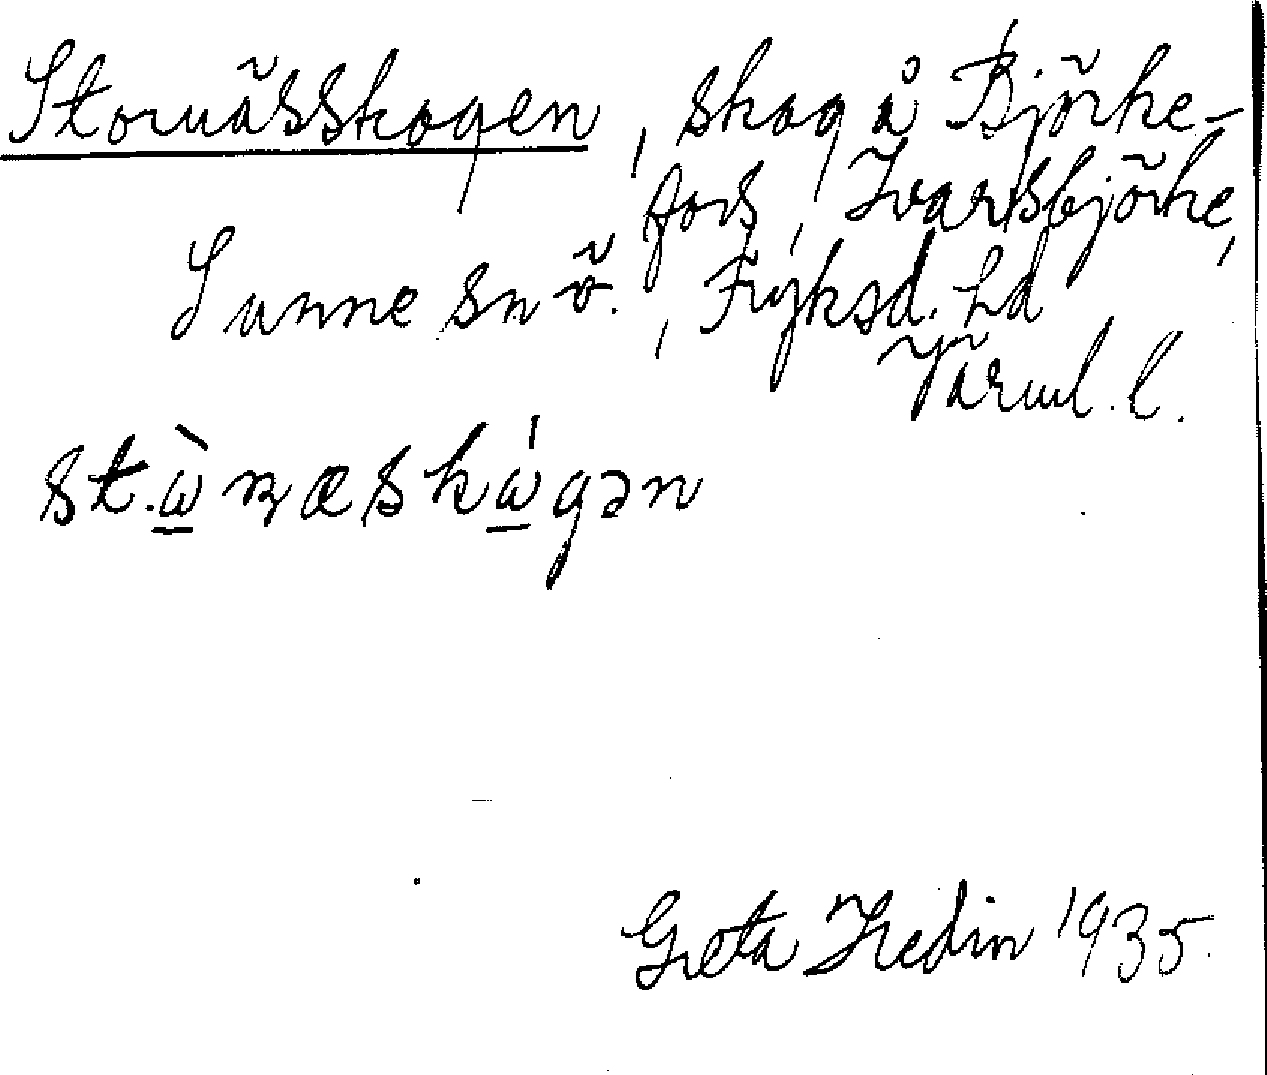 Stornässkogen, skog å Björke-
fors, Ivarsbjörke,
Sunne sn ö., Fryksd. hd
Värml. l.
st.ὼ̲ɳæskώ̲gən
Greta Hedin 1935.